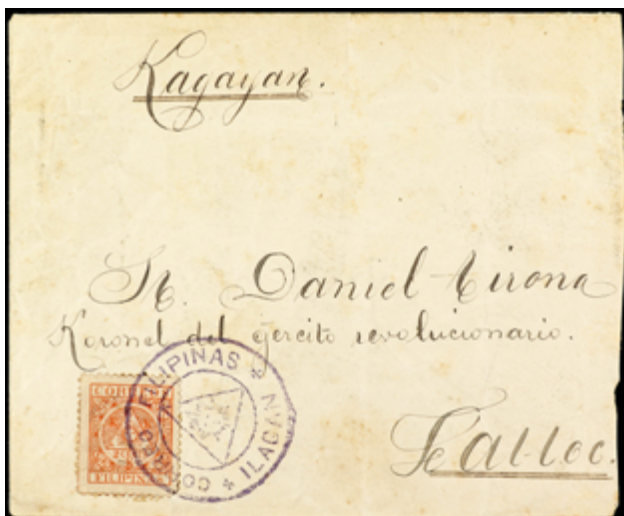 Kagayan.
Sr. Daniel Tirona
Koronel del ejercito revolucionario.
FILIPINAS * ILAGAN * CORREO
CORREOS
FILIPINAS